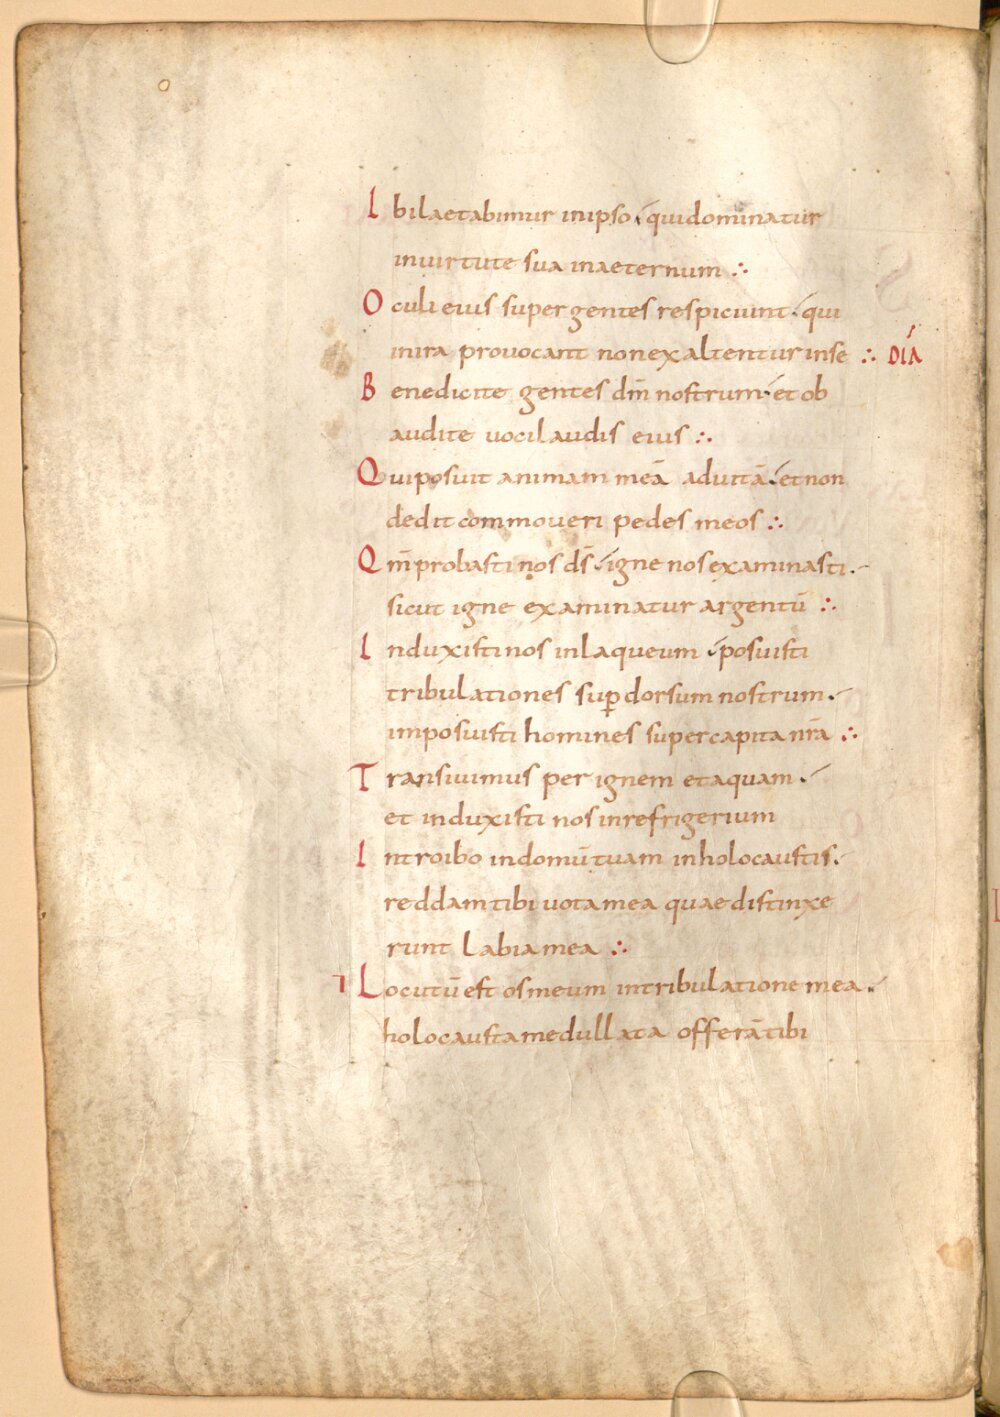 Ibi laetabimur in ipso. qui dominatur
in uirtute sua in aeternum ∴
Oculi eius super gentes respiciunt. qui
in ira prouocant non exaltentur in se ∴ DIA
Benedicite gentes dm̄ nostrum. et ob
audite uoci laudis eius ∴
Qui posuit animam meā ad uitā. et non
dedit commoueri pedes meos ∴
Qm̄ probasti nos ds̄. igne nos examinasti.
sicut igne examinatur argentū ∴
Induxisti nos in laqueum. posuisti
tribulationes sup̱ dorsum nostrum.
imposuisti homines super capita nr̄a ∴
Transiuimus per ignem et aquam.
et induxisti nos in refrigerium
Introibo in domū tuam in holocaustis.
reddam tibi uota mea quae distinxe
runt labia mea ∴
⁊ Locutū est os meum in tribulatione mea.
holocausta medullata offerā tibi